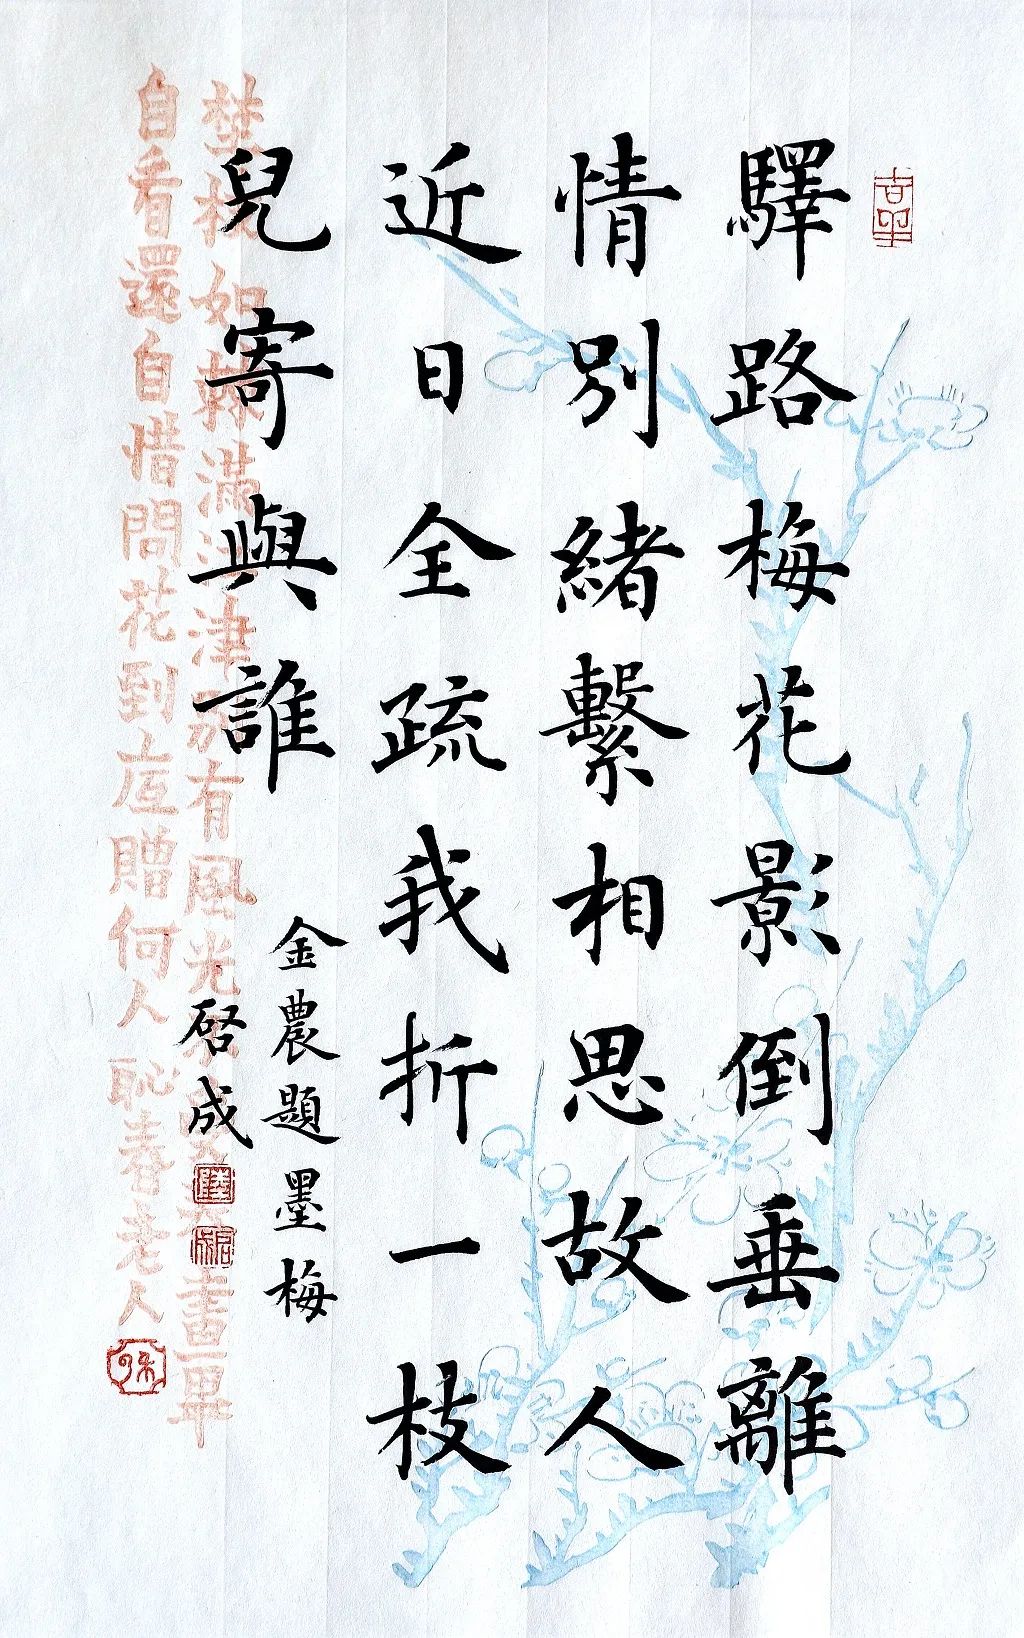 驛路梅花影倒垂離
情別緒繫相思故人
近日全疏我折一枝
兒寄與誰
金農題墨梅
啓成
自看還自惜問花到底贈何人恥春老人